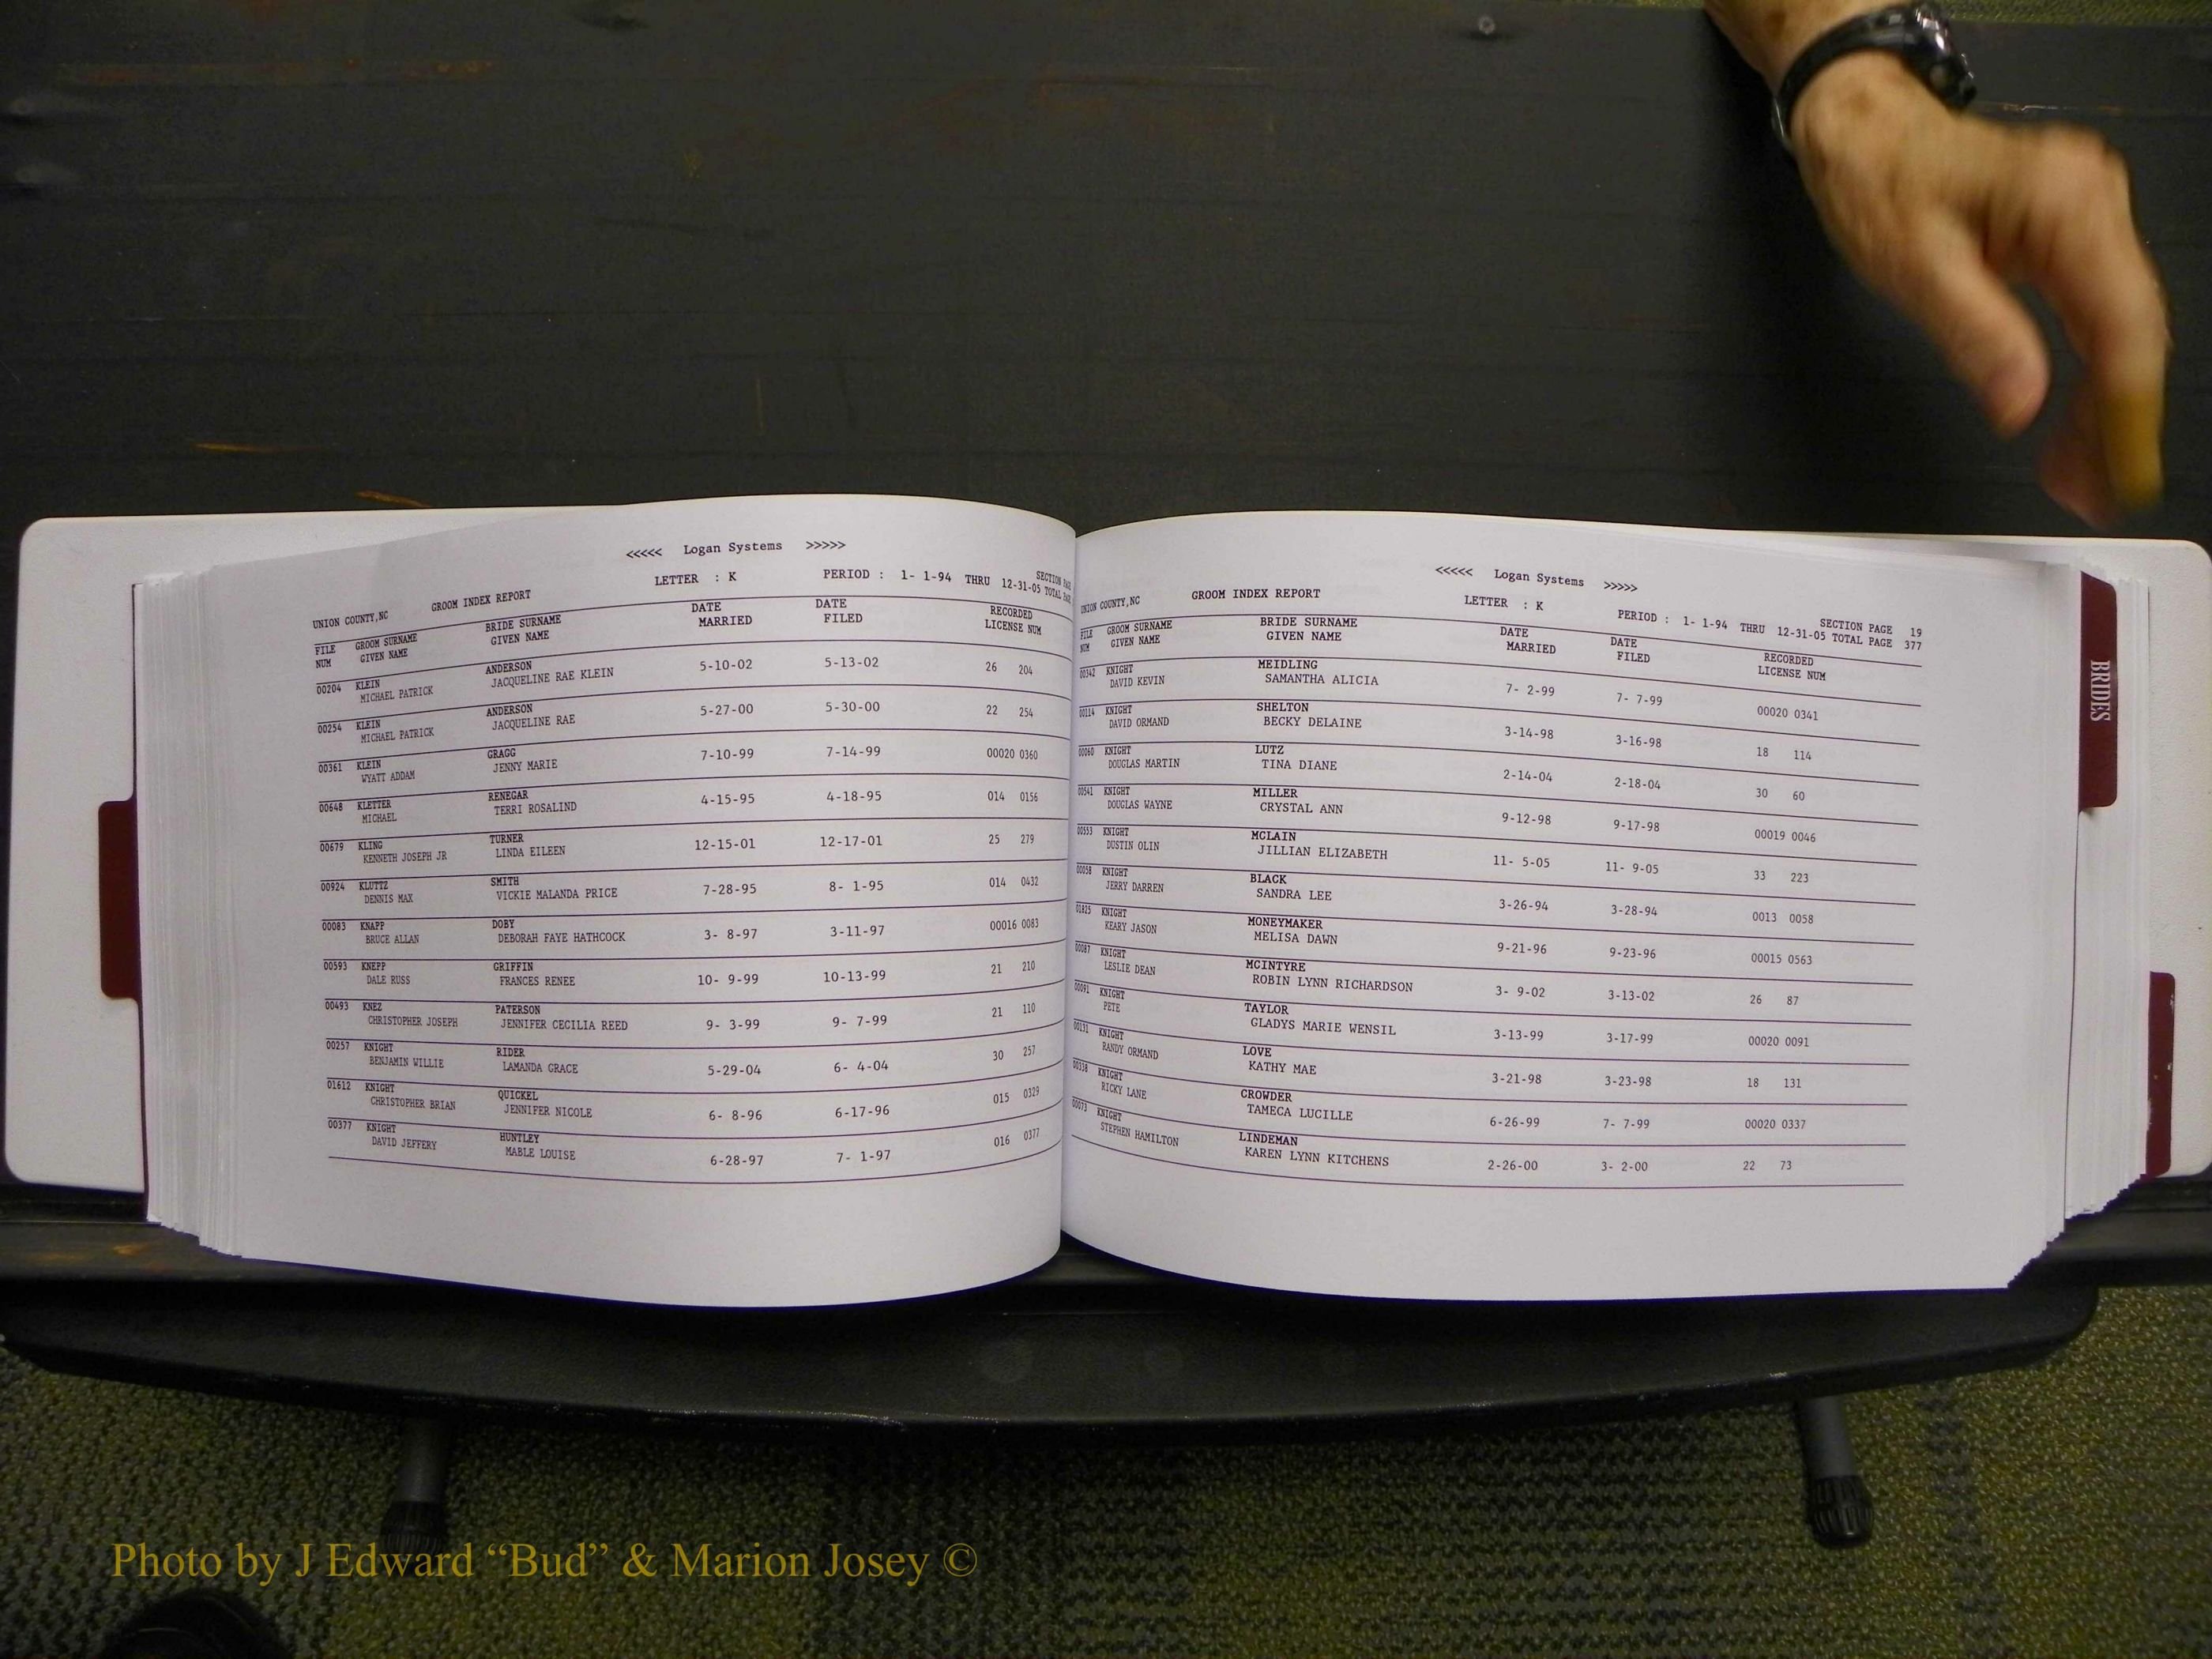 <<<<< Logan Systems >>>>>
LETTER : K PERIOD : 1- 1-94 THRU 12-31-05 TOTAL
SECTION
UNION COUNTY,NC GROOM INDEX REPORT
FILE GROOM SURNAME BRIDE SURNAME DATE DATE RECORDED
NUM GIVEN NAME GIVEN NAME MARRIED FILED LICENSE NUM
00204 KLEIN ANDERSON 5-10-02 5-13-02 26 204
MICHAEL PATRICK JACQUELINE RAE KLEIN
00254 KLEIN ANDERSON 5-27-00 5-30-00 22 254
MICHAEL PATRICK JACQUELINE RAE
00361 KLEIN GRAGG 7-10-99 7-14-99 00020 0360
WYATT ADDAM JENNY MARIE
00648 KLETTER RENEGAR 4-15-95 4-18-95 014 0156
MICHAEL TERRI ROSALIND
00679 KLING TURNER 12-15-01 12-17-01 25 279
KENNETH JOSEPH JR LINDA EILEEN
00924 KLUTTZ SMITH 7-28-95 8- 1-95 014 0432
DENNIS MAX VICKIE MALANDA PRICE
00083 KNAPP DOBY 3- 8-97 3-11-97 00016 0083
BRUCE ALLAN DEBORAH FAYE HATHCOCK
00593 KNEPP GRIFFIN 10- 9-99 10-13-99 21 210
DALE RUSS FRANCES RENEE
00493 KNEZ PATERSON 9- 3-99 9- 7-99 21 110
CHRISTOPHER JOSEPH JENNIFER CECILIA REED
00257 KNIGHT RIDER 5-29-04 6- 4-04 30 257
BENJAMIN WILLIE LAMANDA GRACE
01612 KNIGHT QUICKEL 6- 8-96 6-17-96 015 0329
CHRISTOPHER BRIAN JENNIFER NICOLE
00377 KNIGHT HUNTLEY 6-28-97 7- 1-97 016 0377
DAVID JEFFERY MABLE LOUISE
<<<<< Logan Systems >>>>>
UNION COUNTY,NC GROOM INDEX REPORT LETTER : K PERIOD : 1- 1-94 THRU 12-31-05 TOTAL PAGE 377
SECTION PAGE 19
FILE GROOM SURNAME BRIDE SURNAME DATE DATE RECORDED
NUM GIVEN NAME GIVEN NAME MARRIED FILED LICENSE NUM
00342 KNIGHT MEIDLING 7- 2-99 7- 7-99 00020 0341
DAVID KEVIN SAMANTHA ALICIA
00114 KNIGHT SHELTON 3-14-98 3-16-98 18 114
DAVID ORMAND BECKY DELAINE
00060 KNIGHT LUTZ 2-14-04 2-18-04 30 60
DOUGLAS MARTIN TINA DIANE
00541 KNIGHT MILLER 9-12-98 9-17-98 00019 0046
DOUGLAS WAYNE CRYSTAL ANN
00553 KNIGHT MCLAIN 11- 5-05 11- 9-05 33 223
DUSTIN OLIN JILLIAN ELIZABETH
00058 KNIGHT BLACK 3-26-94 3-28-94 0013 0058
JERRY DARREN SANDRA LEE
01825 KNIGHT MONEYMAKER 9-21-96 9-23-96 00015 0563
KEARY JASON MELISA DAWN
00087 KNIGHT MCINTYRE 3- 9-02 3-13-02 26 87
LESLIE DEAN ROBIN LYNN RICHARDSON
00091 KNIGHT TAYLOR 3-13-99 3-17-99 00020 0091
PETE GLADYS MARIE WENSIL
00131 KNIGHT LOVE 3-21-98 3-23-98 18 131
RANDY ORMAND KATHY MAE
00338 KNIGHT CROWDER 6-26-99 7- 7-99 00020 0337
RICKY LANE TAMECA LUCILLE
00073 KNIGHT LINDEMAN 2-26-00 3- 2-00 22 73
STEPHEN HAMILTON KAREN LYNN KITCHENS
BRIDES
Photo by J Edward “Bud” & Marion Josey ©